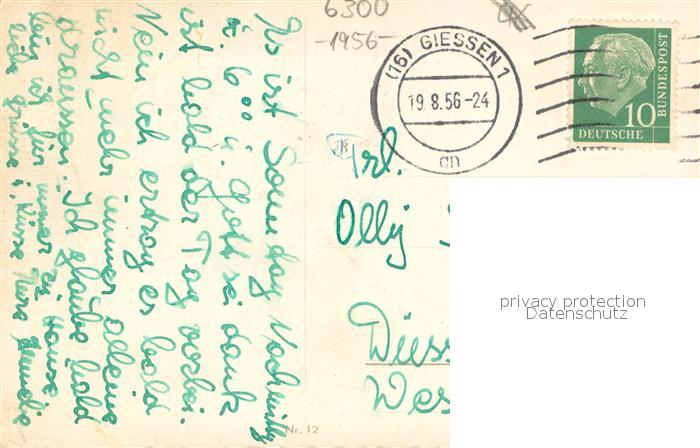 6300
-1956-
(16) GIESSEN 1
19.8.56-24
an
10
DEUTSCHE
BUNDESPOST
Frl.
Olly
Düss
Wes
Es ist Sonntag Nachmittag
6⁰⁰ u. Gott sei dank
ist bald der Tag vorbei.
Nein ich ertrag es bald
nicht mehr immer alleine
draussen. Ich glaube bald
bin ich für immer zu Hause.
liebe Grüsse u. Küsse
Nr. 12
privacy protection
Datenschutz